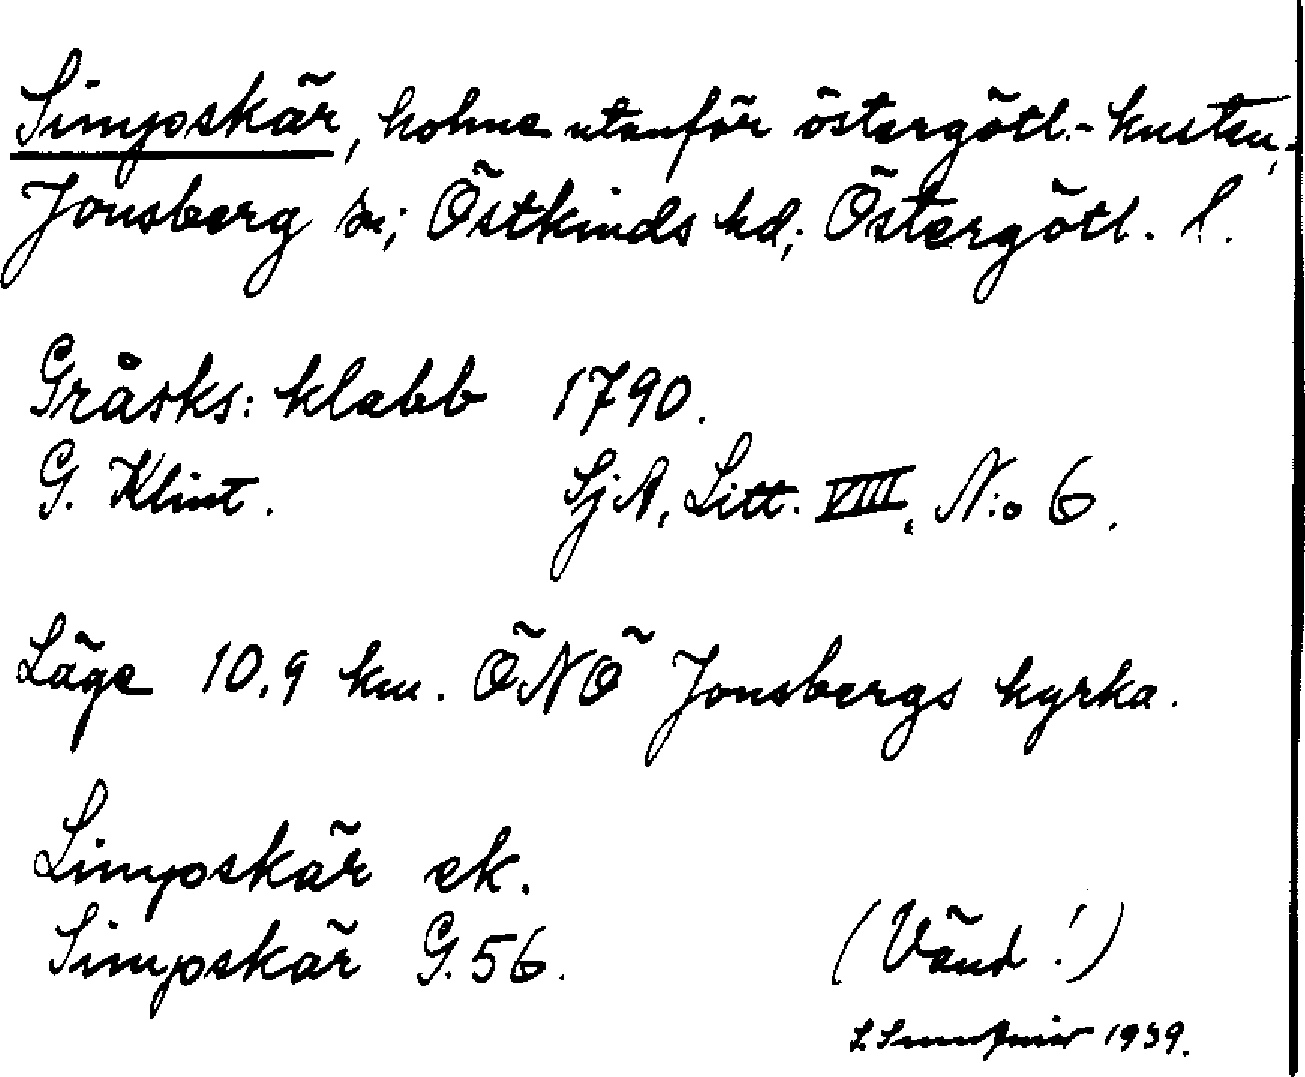 Simpskär, holme utanför östergötl.-kusten,
Jonsberg sn; Östkinds hd; Östergötl. l.
Gråsks: klabb 1790.
G. Klint. SjA, Litt. VIII, N:o 6.
Läge 10,9 km. ÖNÖ Jonsbergs kyrka.
Limpskär ek.
Simpskär G. 56.
(Vänd!)
1939.